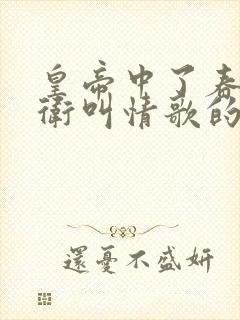 皇帝中了春
衛叫情歌的
還憂不盛妍